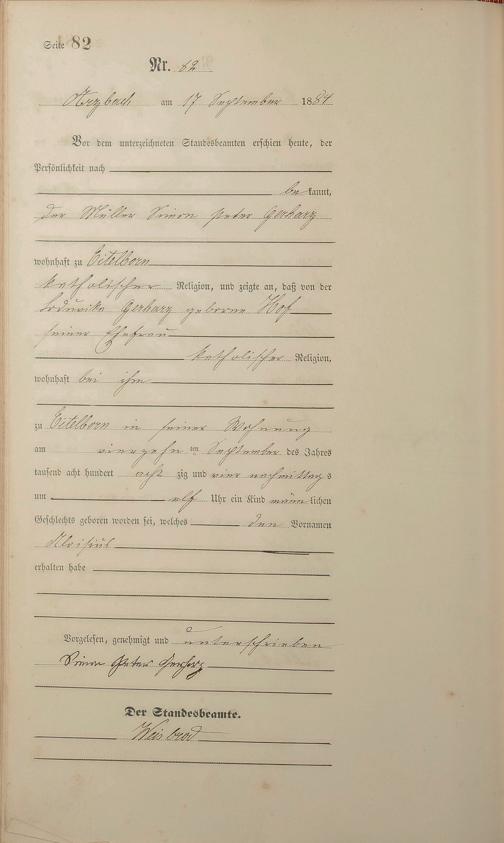 Seite 82
Nr. 82
Arzbach am 17 September 1884
Vor dem unterzeichneten Standesbeamten erschien heute, der
Persönlichkeit nach
bekannt,
der Müller Simon Peter Gerharz
wohnhaft zu Eitelborn
katholischer Religion, und zeigte an, daß von der
Ludovika Gerharz geborne Hof
seiner Ehefrau
katholischer Religion,
wohnhaft bei ihm
zu Eitelborn in seiner Wohnung
am vierzehn ten September des Jahres
tausend acht hundert acht zig und vier nachmittags
um elf Uhr ein Kind männlichen
Geschlechts geboren worden sei, welches den Vornamen
Aloisius
erhalten habe
Vorgelesen, genehmigt und unterschrieben
Simon Peter Gerharz
Der Standesbeamte.
Weisbrod